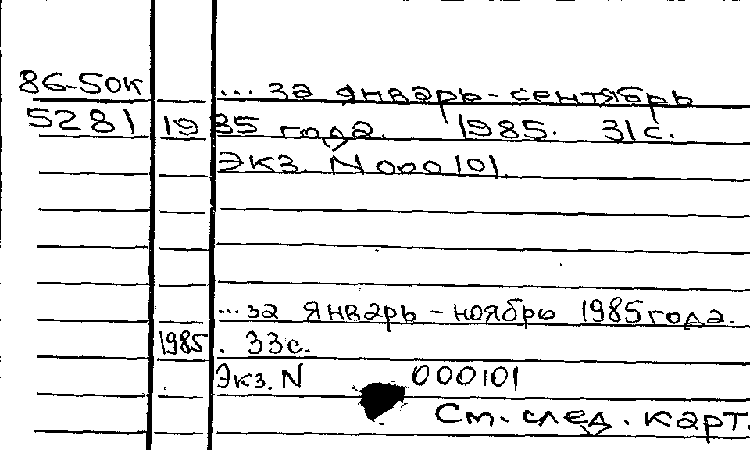 86-50к ... за январь-сентябрь
5281 1985 года. 1985. 31с.
Экз. N 000101.
... за январь - ноябрь 1985 года.
1985. 33с.
Экз. N 000101
См. след. карт.